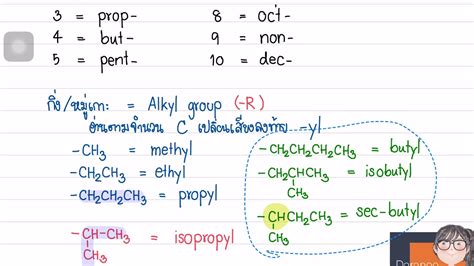 3 = prop-
8 = oct-
4 = but-
9 = non-
5 = pent-
10 = dec-
กิ่ง/หมู่เกาะ = Alkyl group (-R)
อ่านตามจำนวน C เปลี่ยนเสียงลงท้าย -yl
-CH3 = methyl
-CH2CH3 = ethyl
-CH2CH2CH3 = propyl
-CH-CH3 = isopropyl
CH3
-CH2CH2CH2CH3 = butyl
-CH2CHCH3 = isobutyl
CH3
-CHCH2CH3 = sec-butyl
CH3